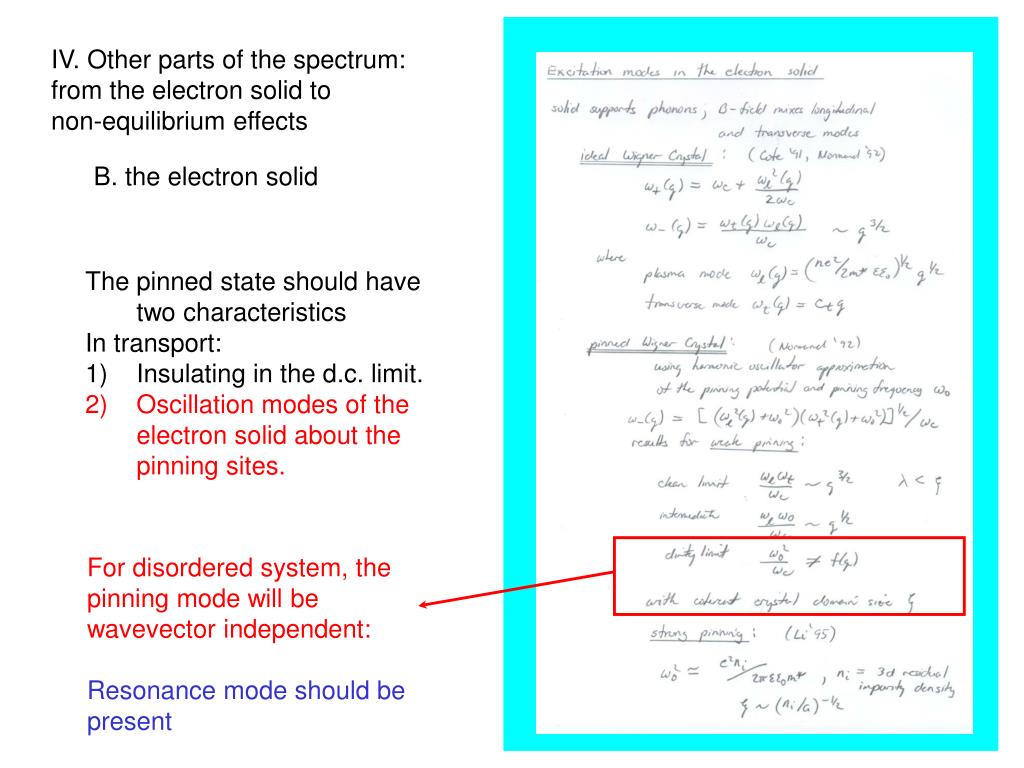 IV. Other parts of the spectrum:
from the electron solid to
non-equilibrium effects
B. the electron solid
The pinned state should have
two characteristics
In transport:
1) Insulating in the d.c. limit.
2) Oscillation modes of the
electron solid about the
pinning sites.
For disordered system, the
pinning mode will be
wavevector independent:
Resonance mode should be
present
Excitation modes in the electron solid
solid supports phonons; B-field mixes longitudinal
and transverse modes
ideal Wigner Crystal : (Cote '91, Normand '92)
ω₊(q) = ωc + ωℓ²(q)/2ωc
ω₋(q) = ωt(q) ωℓ(q)/ωc ~ q^3/2
where
plasma mode ωℓ(q) = (ne²/2m* εε₀)^1/2 q^1/2
transverse mode ωt(q) = ct q
pinned Wigner Crystal: (Normand '92)
using harmonic oscillator approximation
of the pinning potential and pinning frequency ω₀
ω₋(q) = [(ωℓ²(q)+ω₀²)(ωt²(q)+ω₀²)]^1/2/ωc
results for weak pinning:
clean limit ωℓωt/ωc ~ q^3/2 λ < ξ
intermediate ωℓ ω₀/ωc ~ q^1/2
dirty limit ω₀²/ωc ≠ f(q)
with coherent crystal domain size ξ
strong pinning: (Li '95)
ω₀² ≃ e²nᵢ/2πεε₀m* , nᵢ = 3d residual
impurity density
ξ ~ (nᵢ/a)^-1/2